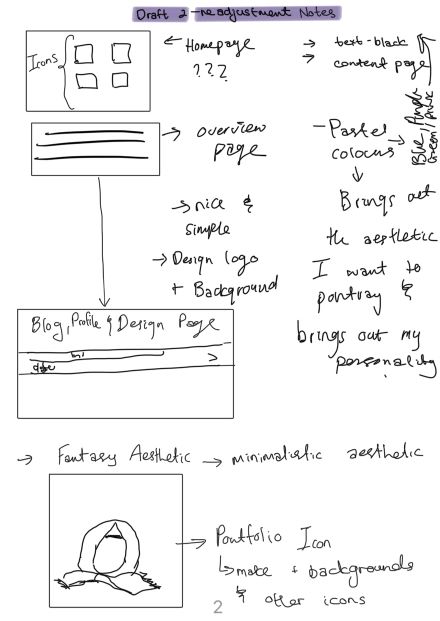 Draft 2 - readjustment Notes
Icons
← Homepage
???
→ text-black
→ content page
→ overview
page
- Pastel
colours →
Blue,
Green, pink
↓
Brings out
the aesthetic
I want to
portray &
brings out my
personality
→ nice &
simple
→ Design logo
+ Background
Blog, Profile & Design Page
>
→ Fantasy Aesthetic → minimalistic aesthetic
→ Portfolio Icon
↳ make + backgrounds
& other icons
2